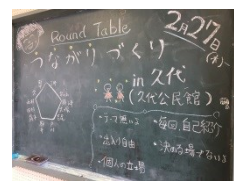 Round Table
2月27日
つながりづくり
in 久代
(久代公民館)
・テーマ無い
・毎回、自己紹介
・出入り自由
・決める場でない
・個人の立場